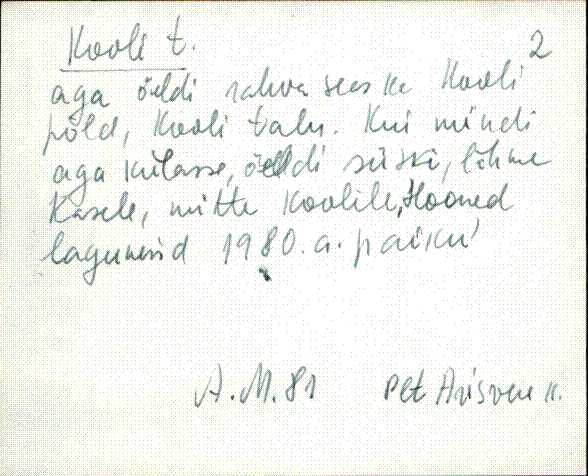 Kooli t.
2
aga öeldi rahva seas ka Kooli
põld, Kooli talu. Kui mindi
aga külasse, öeldi siiski, lähme
Kasele, mitte Koolile, Hooned
lagunesid 1980. a. paiku
A.M. 81 Pet Arisvere k.